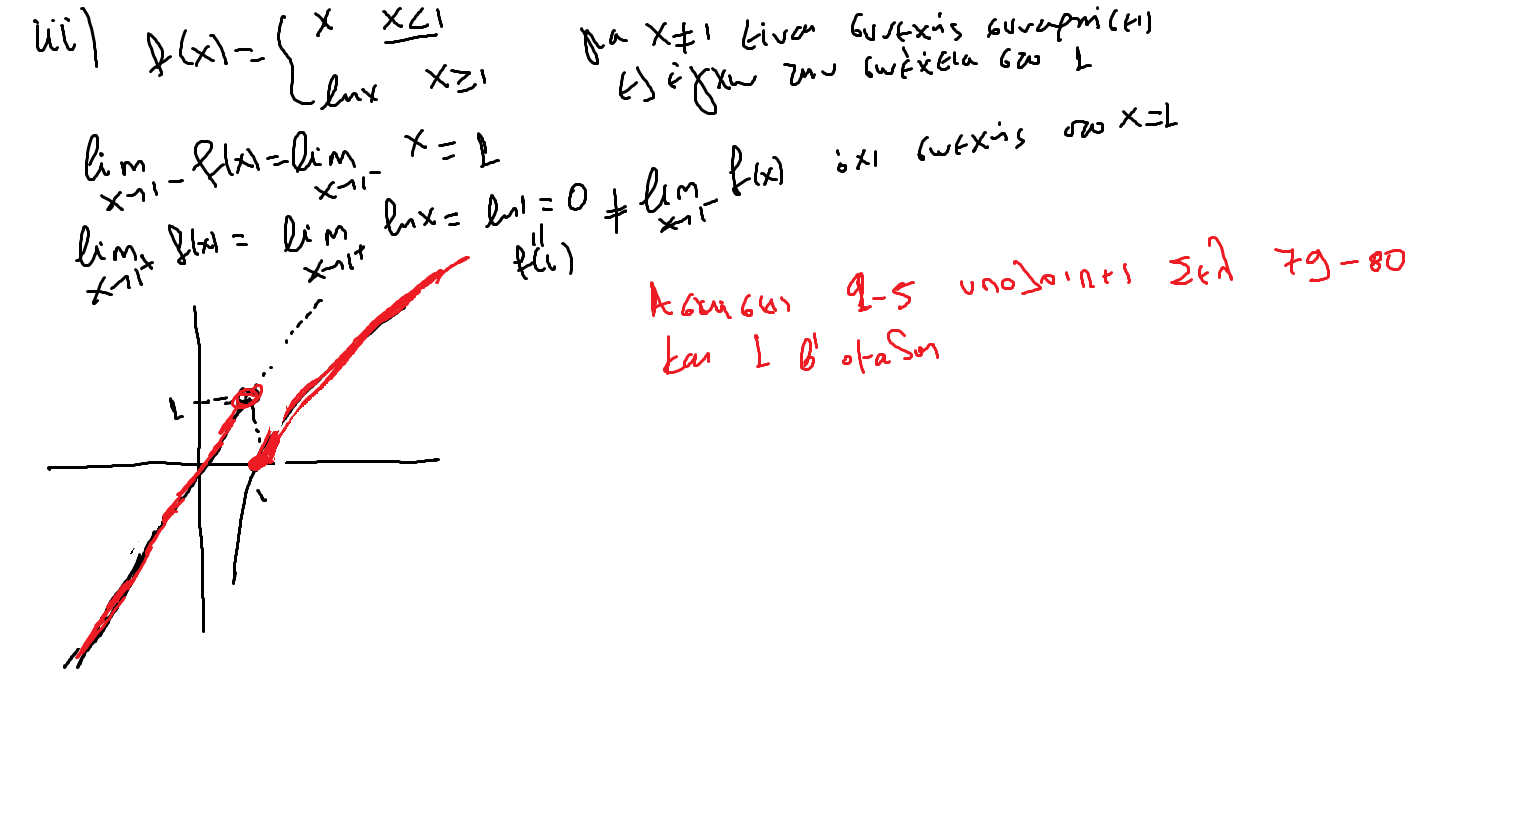 iii) f(x) = { x x<1
lnx x≥1
για x≠1 είναι συνεχής συναρτήσεις
ελέγχω την συνέχεια στο 1
lim x→1⁻ f(x) = lim x→1⁻ x = 1
lim x→1⁺ f(x) = lim x→1⁺ lnx = ln1 = 0 ≠ lim x→1⁻ f(x) όχι συνεχής στο x=1
= f(1)
1
1
Ασκήσεις 2-5 υπόλοιπες Σελ 79-80
και 1 β' ομάδας